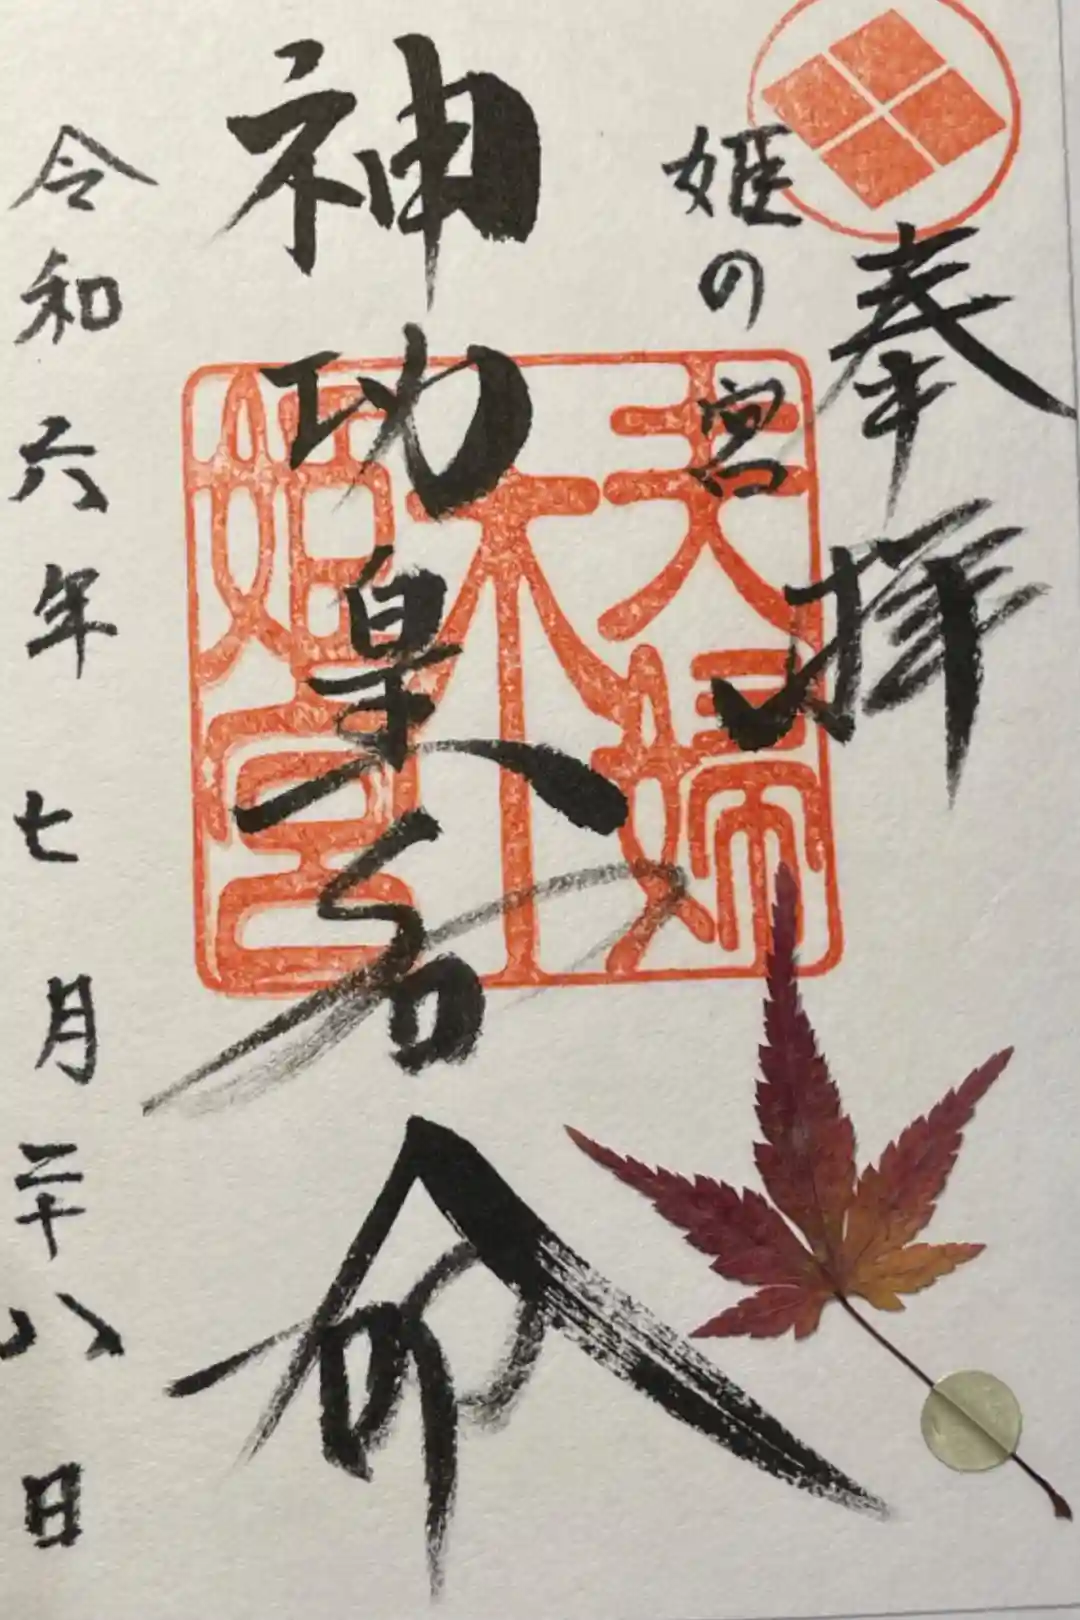 奉拝
姫の宮
夫婦
木
姫宮
神功皇后命
令和六年七月二十八日